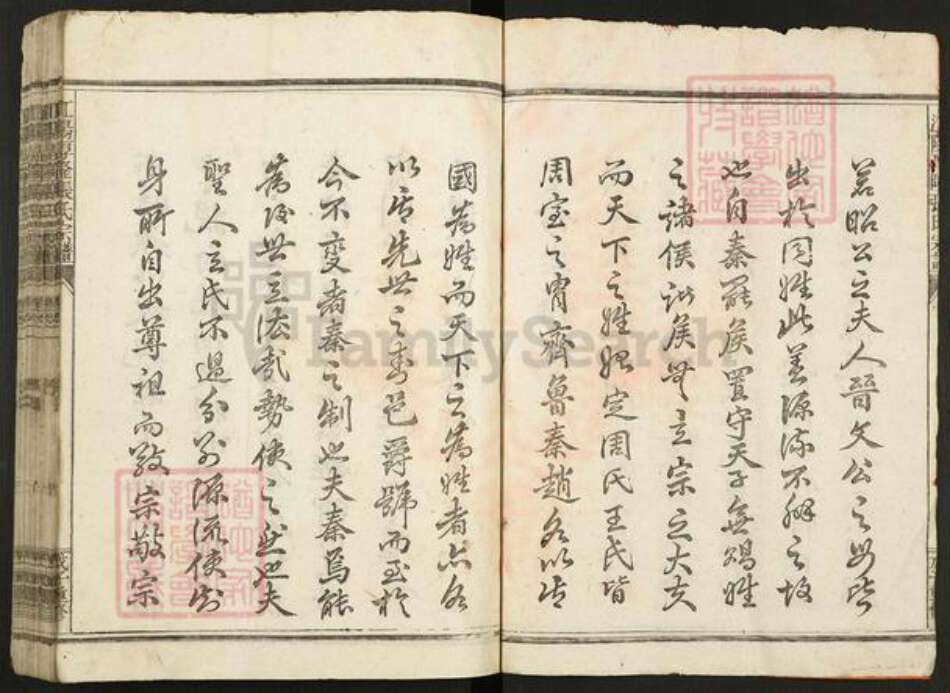 若昭公之夫人晉文公之母皆
出於同姓此蓋源流不辨之故
也自秦罷侯置守天子無賜姓
之諸侯諸侯無立宗之大夫
而天下之姓始定周氏王氏皆
周室之胄齊魯秦趙各以其
國為姓而天下之為姓者亦各
以其先世之封邑爵號而至於
今不變者秦之制也夫秦烏能
為後世立法哉勢使之然也夫
聖人立氏不過分別源流使知
身所自出尊祖而敬宗敬宗
FamilySearch